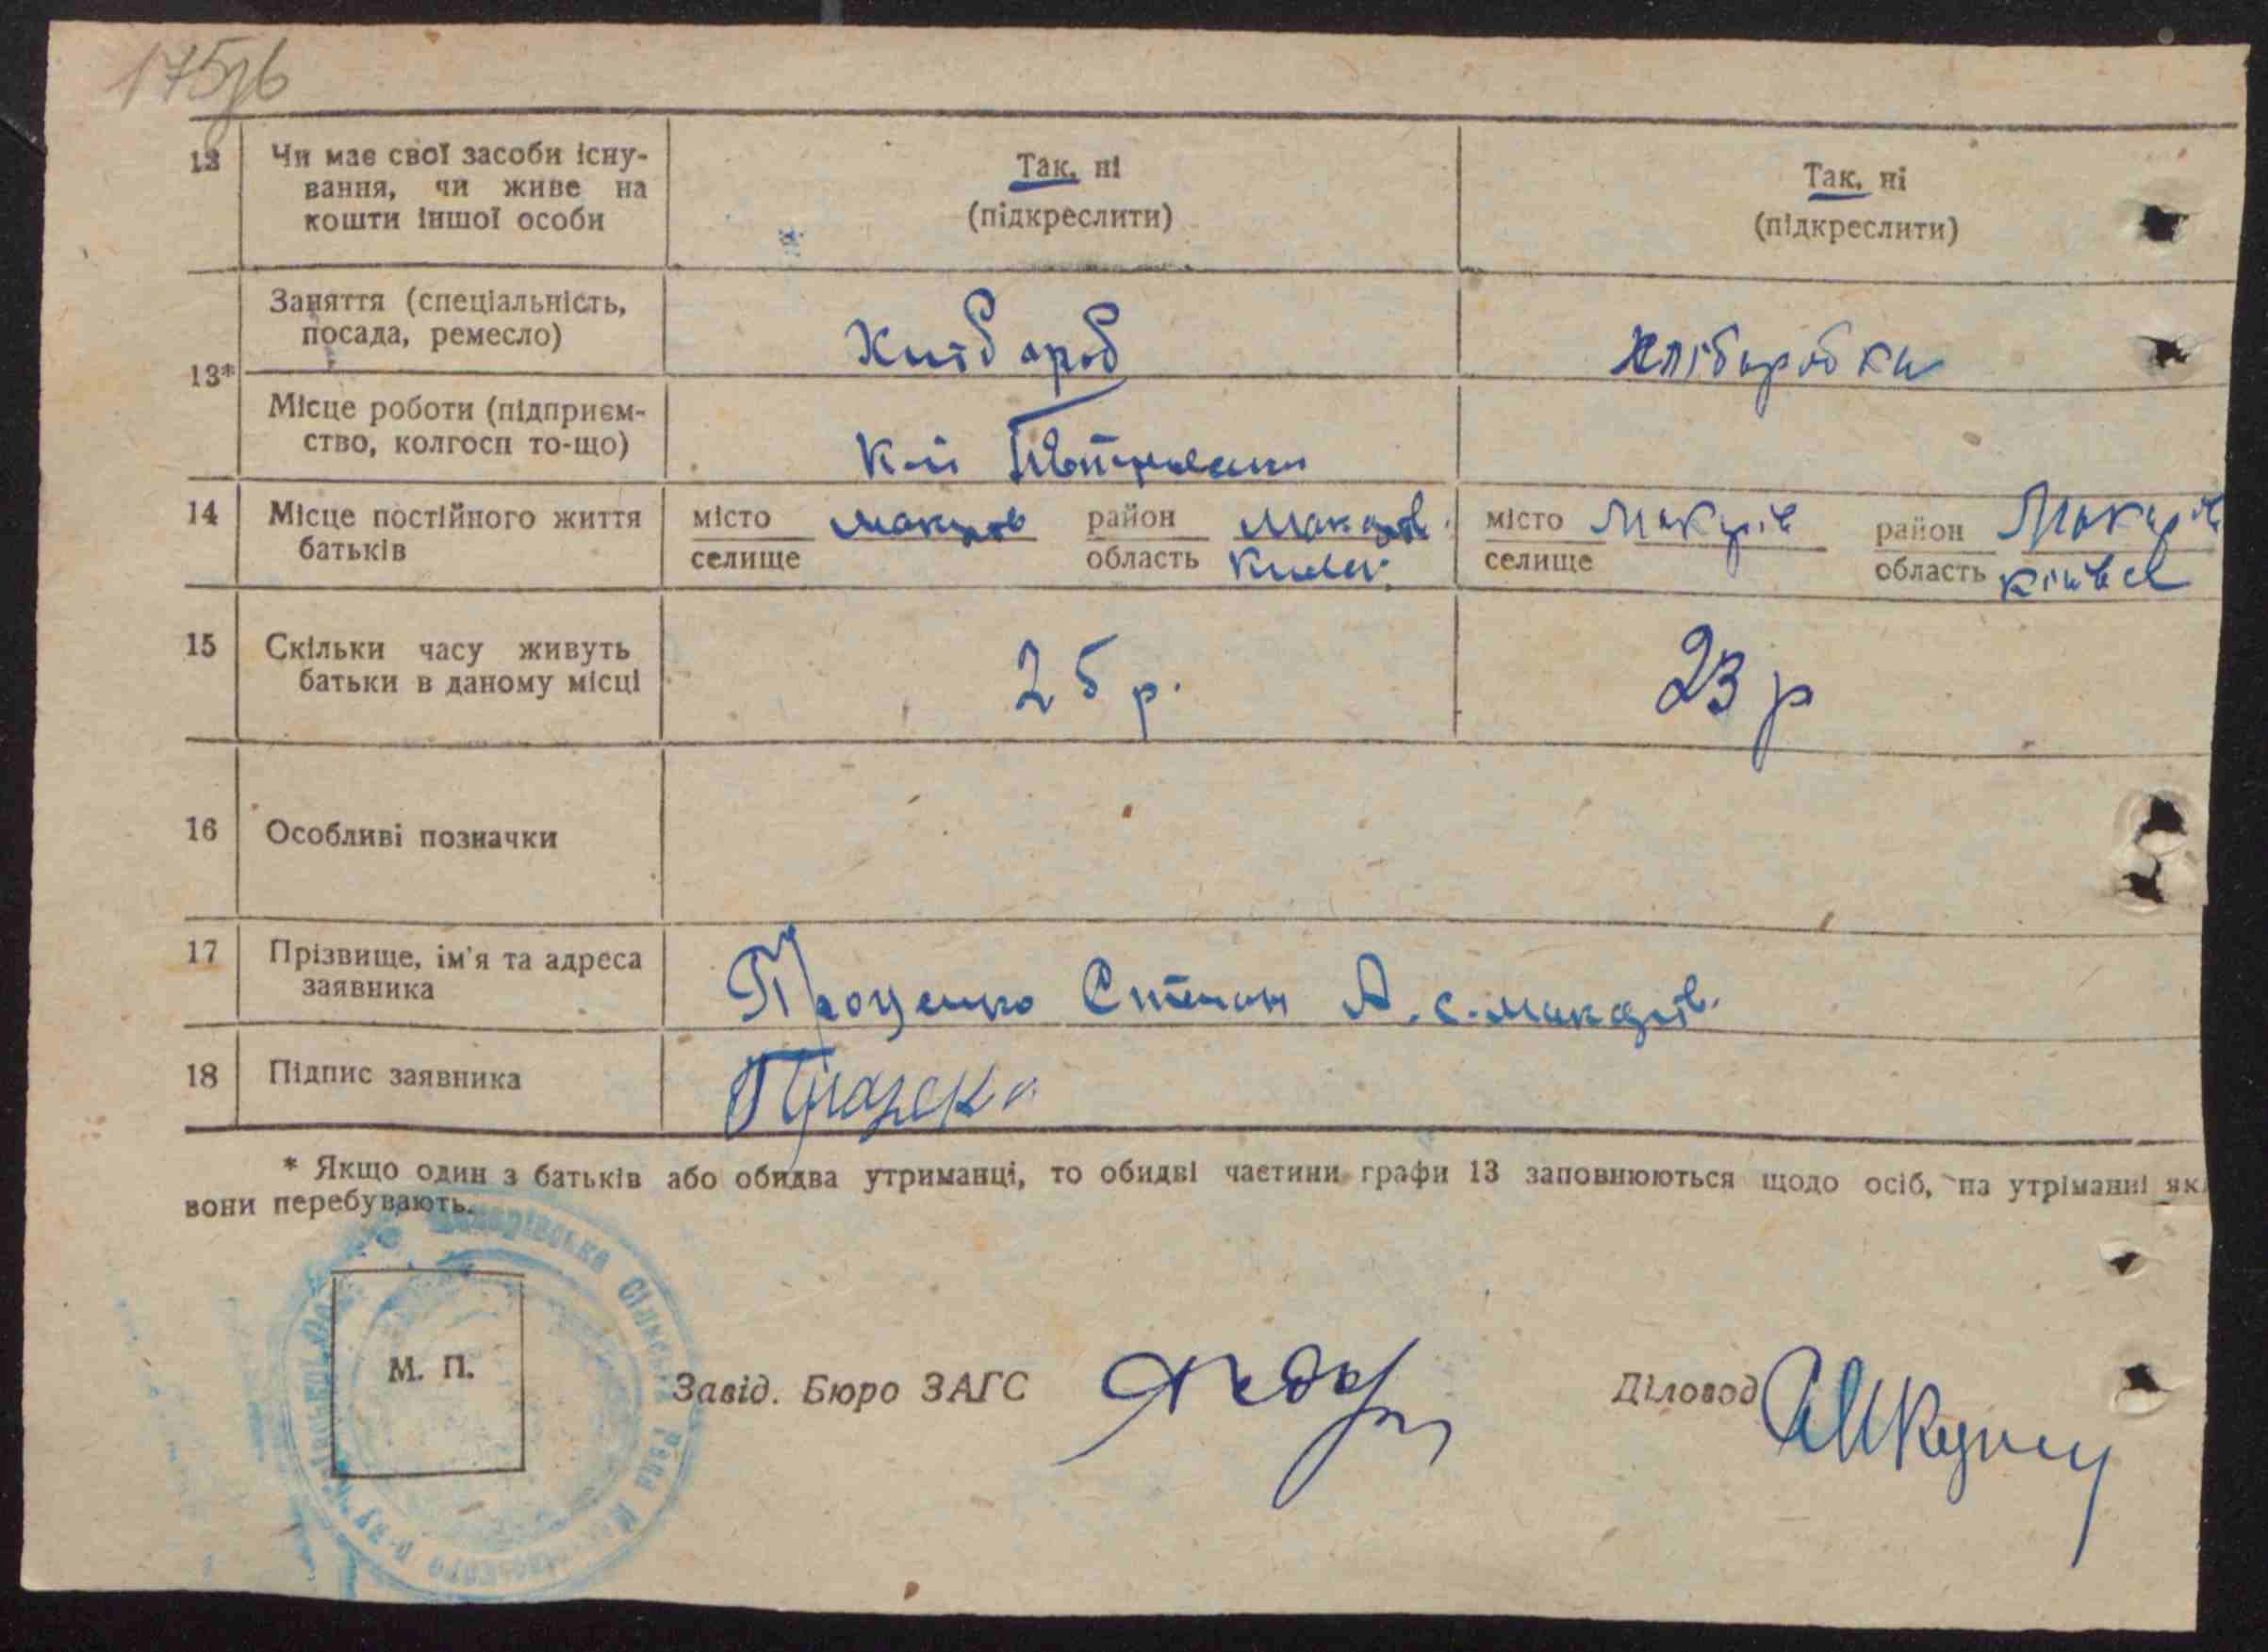 175зв
12 Чи має свої засоби існу-
вання, чи живе на
кошти іншої особи
Так, ні
(підкреслити)
Так, ні
(підкреслити)
13*
Заняття (спеціальність,
посада, ремесло)
Хлібороб
хліборобка
Місце роботи (підприєм-
ство, колгосп то-що)
14 Місце постійного життя
батьків
місто Макарів район Макарів
селище область Київс.
місто Макарів район Макарів
селище область Київсь
15 Скільки часу живуть
батьки в даному місці
25 р.
23 р
16 Особливі позначки
17 Прізвище, ім'я та адреса
заявника
Проценко Степан А. с. Макарів.
18 Підпис заявника
Проценко
* Якщо один з батьків або обидва утриманці, то обидві частини графи 13 заповнюються щодо осіб, на утріманні як
вони перебувають.
Макарівська Сільська Рада
М. П.
Завід. Бюро ЗАГС
Діловод